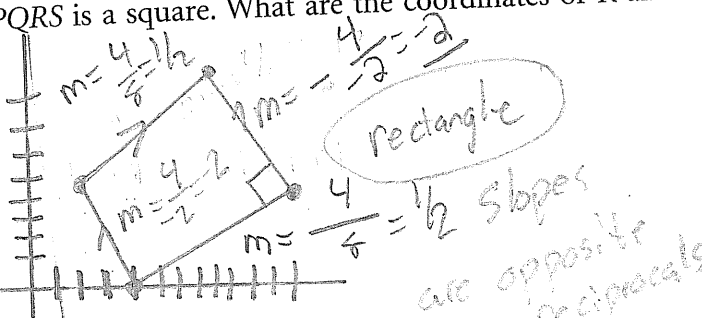 PQRS is a square. What are the coordinates of
m = 4/8 = 1/2
m = - 4/-2 = -2
rectangle
m = 4/-2 = -2
m = 4/8 = 1/2 slopes
are opposite
reciprocals